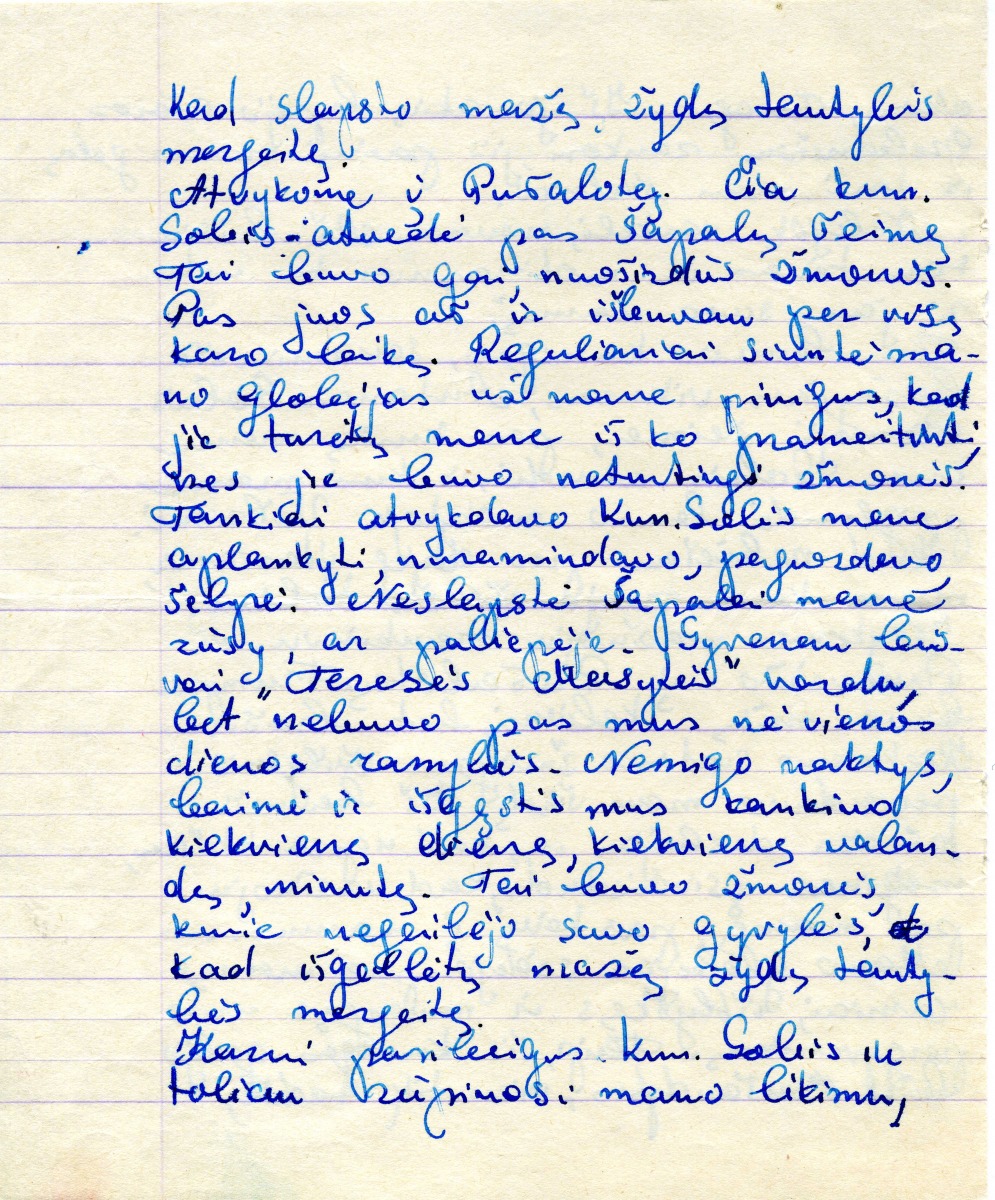 Kad slapsto mažą, žydų tautybės
mergaitę.
Atvykome į Pušalotą. Čia kun.
Sobis atvedė pas Šapalų šeimą
Tai buvo geri, nuoširdūs žmonės.
Pas juos aš ir išbuvau per visą
karo laiką. Reguliariai siuntė ma-
no globėjas už mane pinigus, kad
jie turėtų mane iš ko pramaitinti,
nes jie buvo neturtingi žmonės.
Tankiai atvykdavo kun. Sobis mane
aplankyti, nuramindavo, paguosdavo
šelpė. Neslapstė Šapalai manė
rūsy, ar palėpėje. Gyvenau lais-
vai „Teresės Masytės" vardu,
bet nebuvo pas mus nė vienos
dienos ramybės. Nemigo naktys,
baimė ir išgąstis mus kankino
kiekvieną dieną, kiekvieną valan-
dą, minutę. Tai buvo žmonės,
kurie negailėjo savo gyvybės,
kad išgelbėtų mažą žydų tauty-
bės mergaitę.
Karui pasibaigus kun. Sobis ir
toliau rūpinosi mano likimu,